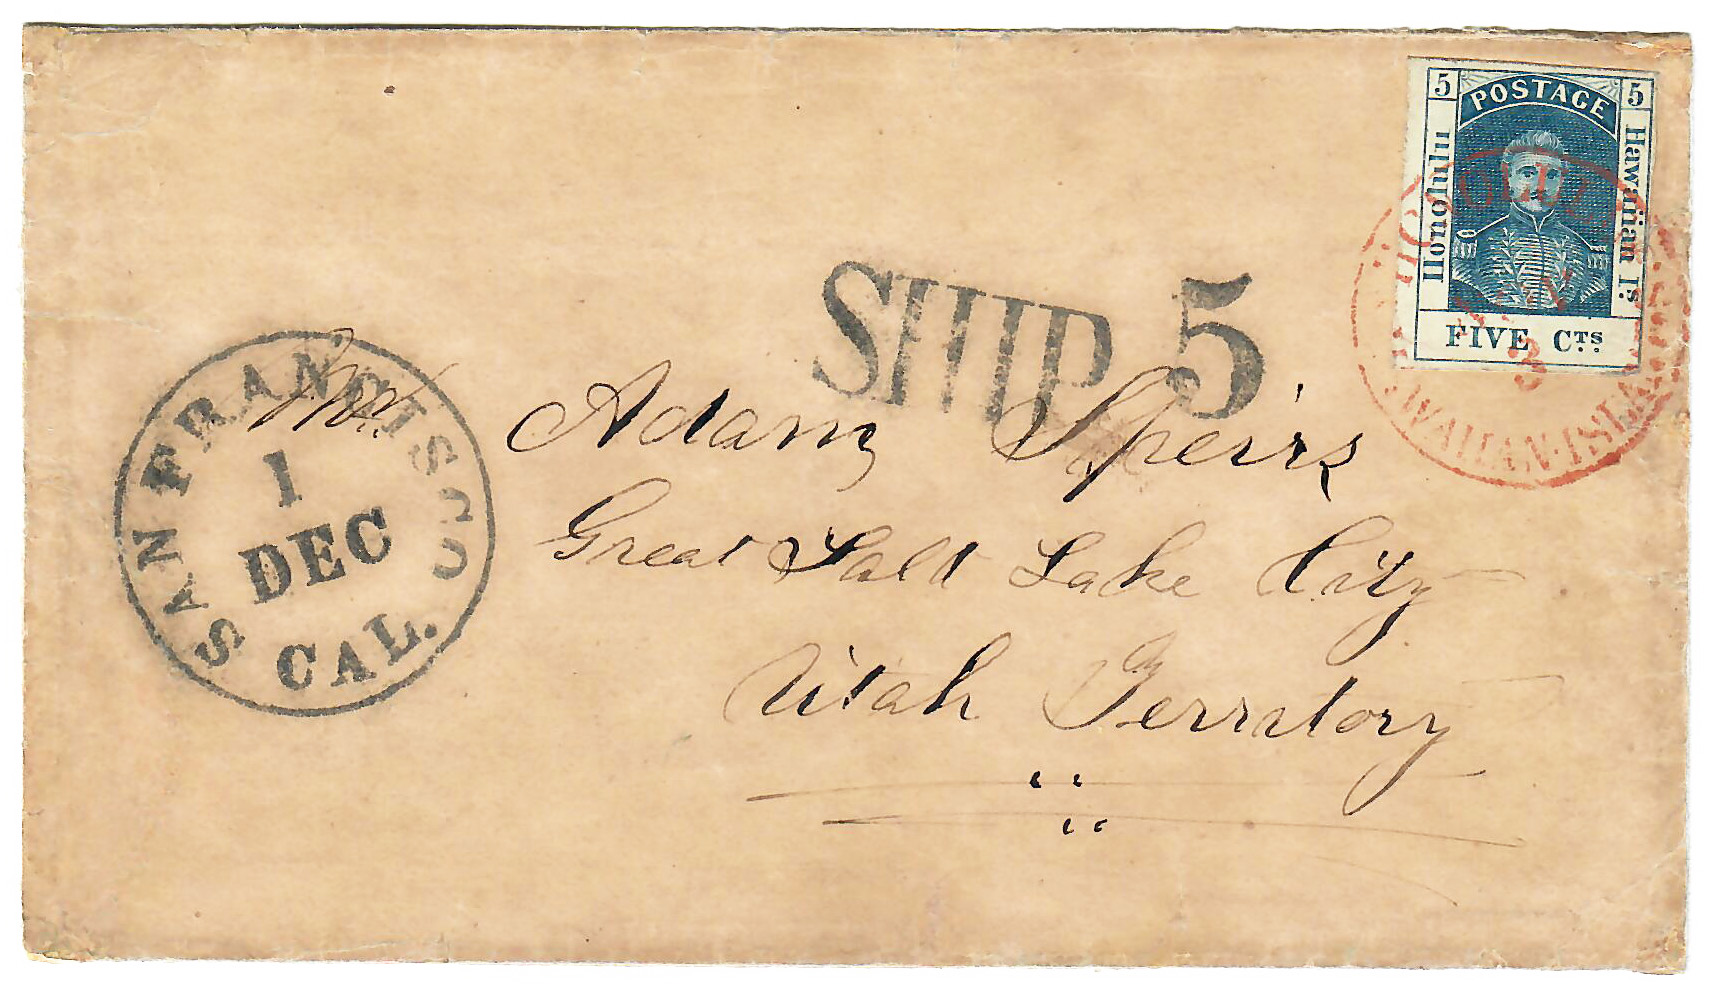 5 POSTAGE 5
Honolulu
Hawaiian Is.
FIVE CTS.
SHIP 5
SAN FRANCISCO
1
DEC
CAL.
Adam Speirs
Great Salt Lake City
Utah Territory
HONOLULU
3
HAWAIIAN·ISLANDS